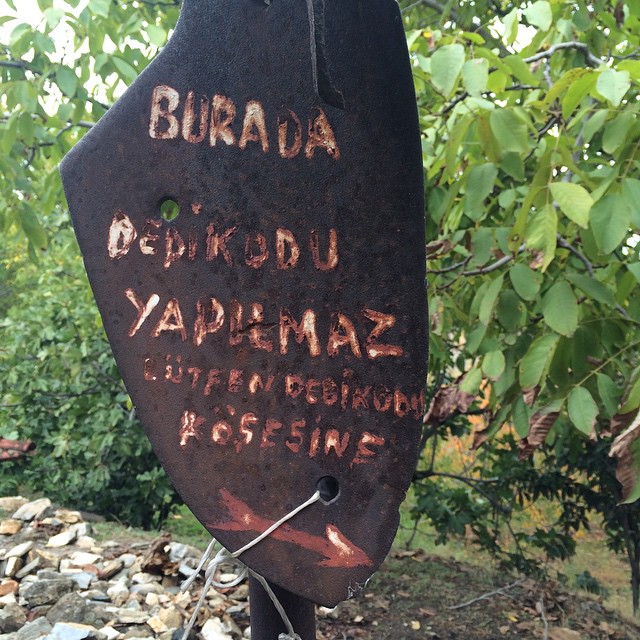 BURADA
DEDİKODU
YAPILMAZ
LÜTFEN DEDİKODU
KÖŞESİNE